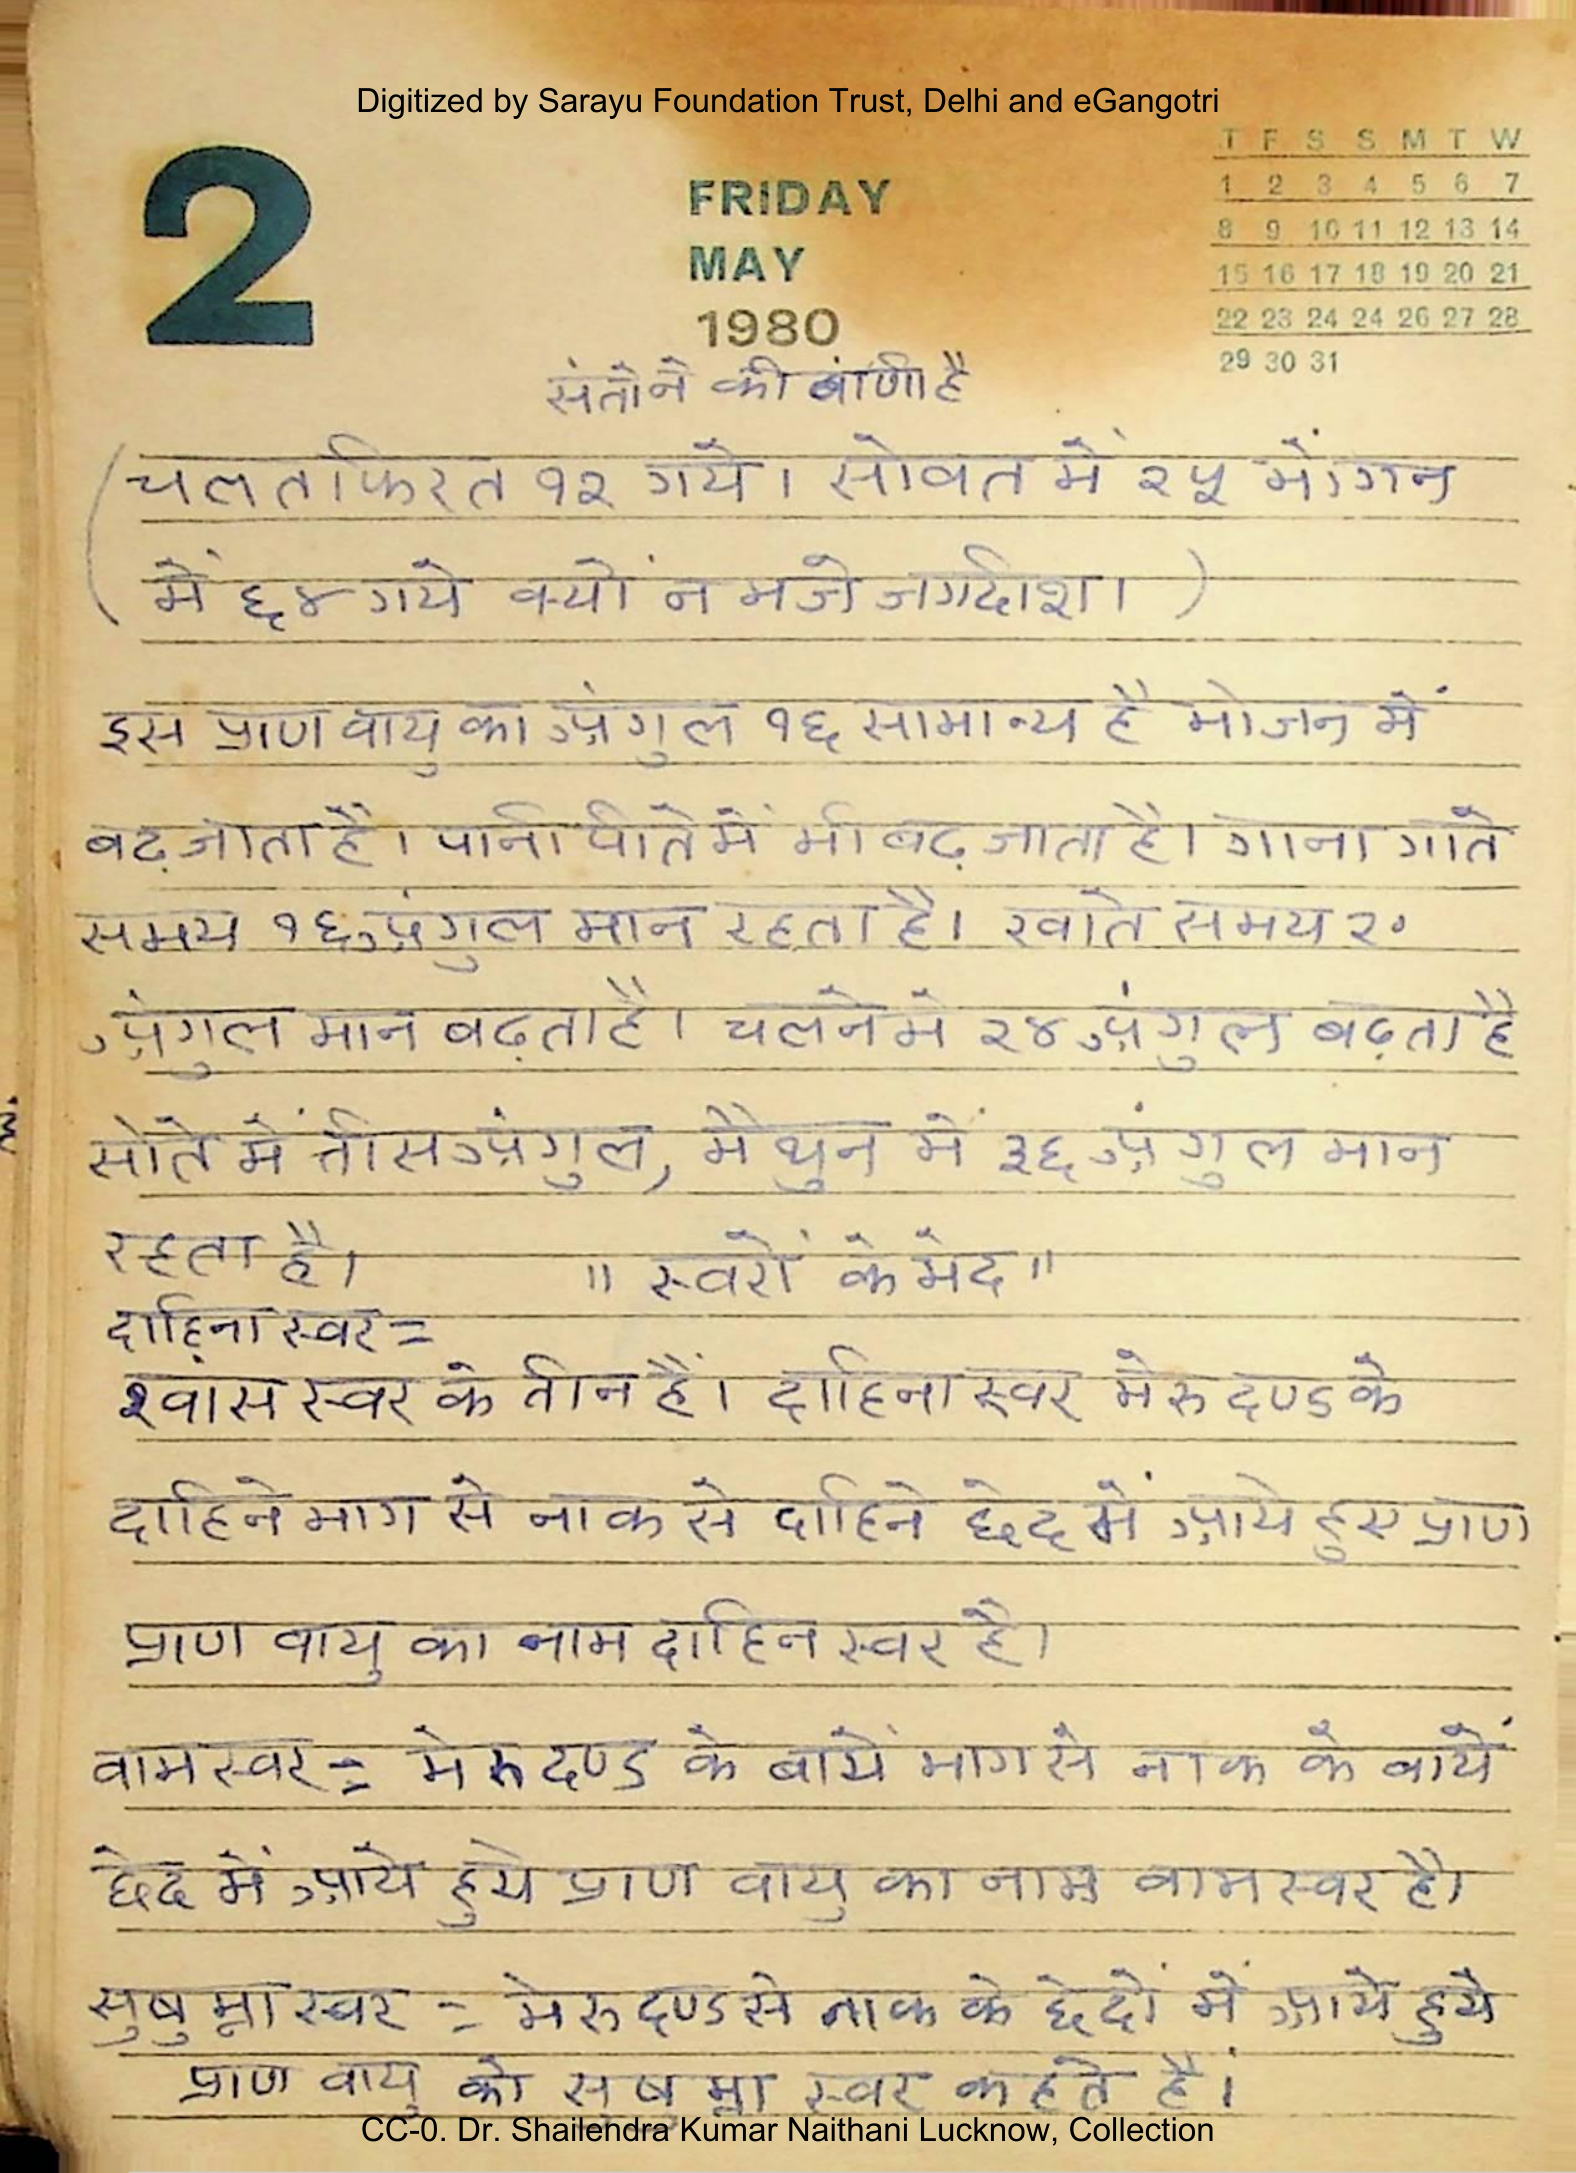 Digitized by Sarayu Foundation Trust, Delhi and eGangotri
2
FRIDAY
MAY
1980
T F S S M T W
1 2 3 4 5 6 7
8 9 10 11 12 13 14
15 16 17 18 19 20 21
22 23 24 24 26 27 28
29 30 31
संतोने की बांणी है
(चलत फिरत १२ गये। सोवत में २५ में।गन
में ६४ गये क्यों न भजे जगदीश। )
इस प्राण वायु का अंगुल १६ सामान्य है भोजन में
बढ़ जाता है। पानी पीते में भी बढ़ जाता है। गाना गाते
समय १६ अंगुल मान रहता है। खाते समय २०
अंगुल मान बढ़ता है। चलने में २४ अंगुल बढ़ता है
सोते में तीस अंगुल, मैथुन में ३६ अंगुल मान
रहता है। "स्वरों के भेद"
दाहिना स्वर =
श्वांस स्वर के तीन हैं। दाहिना स्वर मेरु दण्ड के
दाहिने भाग से नाक से दाहिने छेद में आये हुए प्राण
प्राण वायु का नाम दाहिन स्वर है।
वाम स्वर = मेरु दण्ड के बायें भाग से नाक के बायें
छेद में आये हुये प्राण वायु का नाम वाम स्वर है।
सुषुम्ना स्वर = मेरु दण्ड से नाक के छेदों में आये हुये
प्राण वायु को सुषुम्ना स्वर कहते हैं।
CC-0. Dr. Shailendra Kumar Naithani Lucknow, Collection